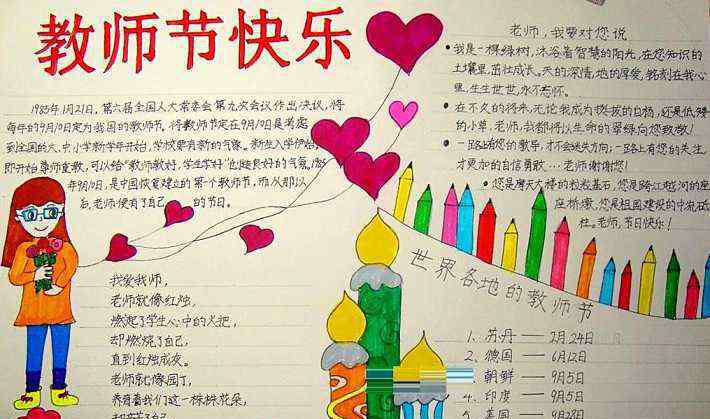 教师节快乐
1985年1月21日,第六届全国人大常委会第九次会议作出决议,将
每年的9月10日定为我国的教师节。将教师节定在9月10日是考虑
到全国的大、中小学新学年开始,学校要有新的气象。新生入学伊始,
即开始尊师重教,可以给"教师教好,学生学好"创造良好的气氛。
年9月10日,是中国恢复建立的第一个教师节,而从那以
后,老师便有了自己的节日。
老师,我要对您说
我是一棵绿树,沐浴着智慧的阳光,在您知识的
土壤里,茁壮成长。天的深情,地的厚爱,铭刻在我心
里,生生世世,永不忘怀。
在不久的将来,无论我成为挺拔的白杨,还是低矮
的小草,老师,我都将以生命的翠绿向您致敬!
一路上有您的教导,才不会迷失方向;一路上有您的关注,
才更加的自信勇敢……老师谢谢您!
您是摩天大楼的粒粒基石,您是跨江越河的座
座桥墩,您是祖国建设的中流砥
柱。老师,节日快乐!
我爱我师,
老师就像红烛,
燃起了学生心中的火把,
却燃烧了自己,
直到红烛成灰。
老师就像园丁,
养育着我们这一株株花朵,
世界各地的教师节
1、苏丹——2月24日
2、德国——6月12日
朝鲜——9月5日
4、印度——9月5日
5、美国——9月28日